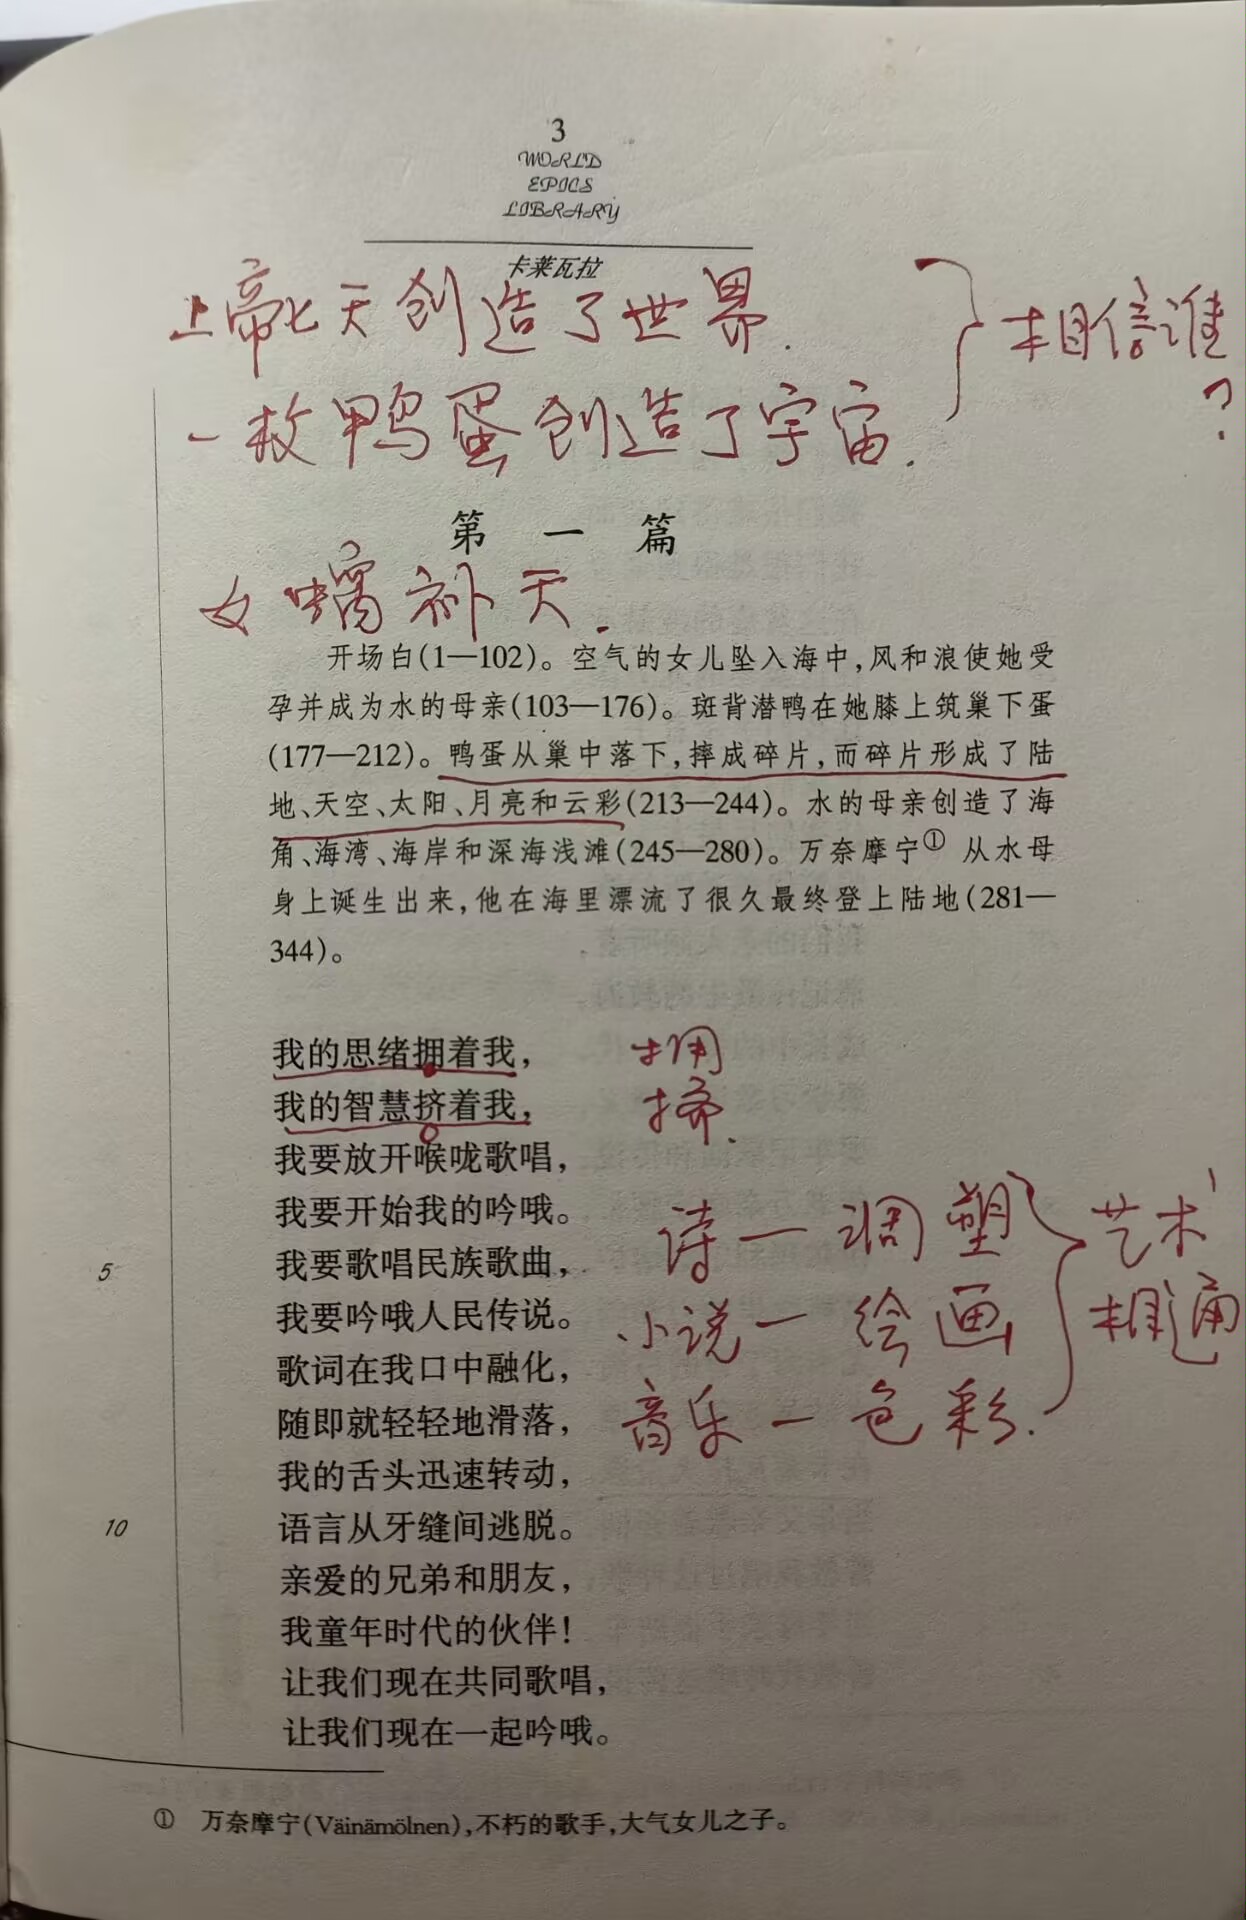 3
WORLD
EPICS
LIBRARY
卡莱瓦拉
上帝七天创造了世界.
一枚鸭蛋创造了宇宙.
相信谁
?
第一篇
女娲补天.
开场白(1—102)。空气的女儿坠入海中,风和浪使她受
孕并成为水的母亲(103—176)。斑背潜鸭在她膝上筑巢下蛋
(177—212)。鸭蛋从巢中落下,摔成碎片,而碎片形成了陆
地、天空、太阳、月亮和云彩(213—244)。水的母亲创造了海
角、海湾、海岸和深海浅滩(245—280)。万奈摩宁① 从水母
身上诞生出来,他在海里漂流了很久最终登上陆地(281—
344)。
我的思绪拥着我, 拥
我的智慧挤着我, 挤.
我要放开喉咙歌唱,
我要开始我的吟哦。
5 我要歌唱民族歌曲,
我要吟哦人民传说。
歌词在我口中融化,
随即就轻轻地滑落,
我的舌头迅速转动,
10 语言从牙缝间逃脱。
亲爱的兄弟和朋友,
我童年时代的伙伴!
让我们现在共同歌唱,
让我们现在一起吟哦。
诗—调塑
小说—绘画
音乐—色彩.
艺术
相通
① 万奈摩宁(Väinämölnen),不朽的歌手,大气女儿之子。